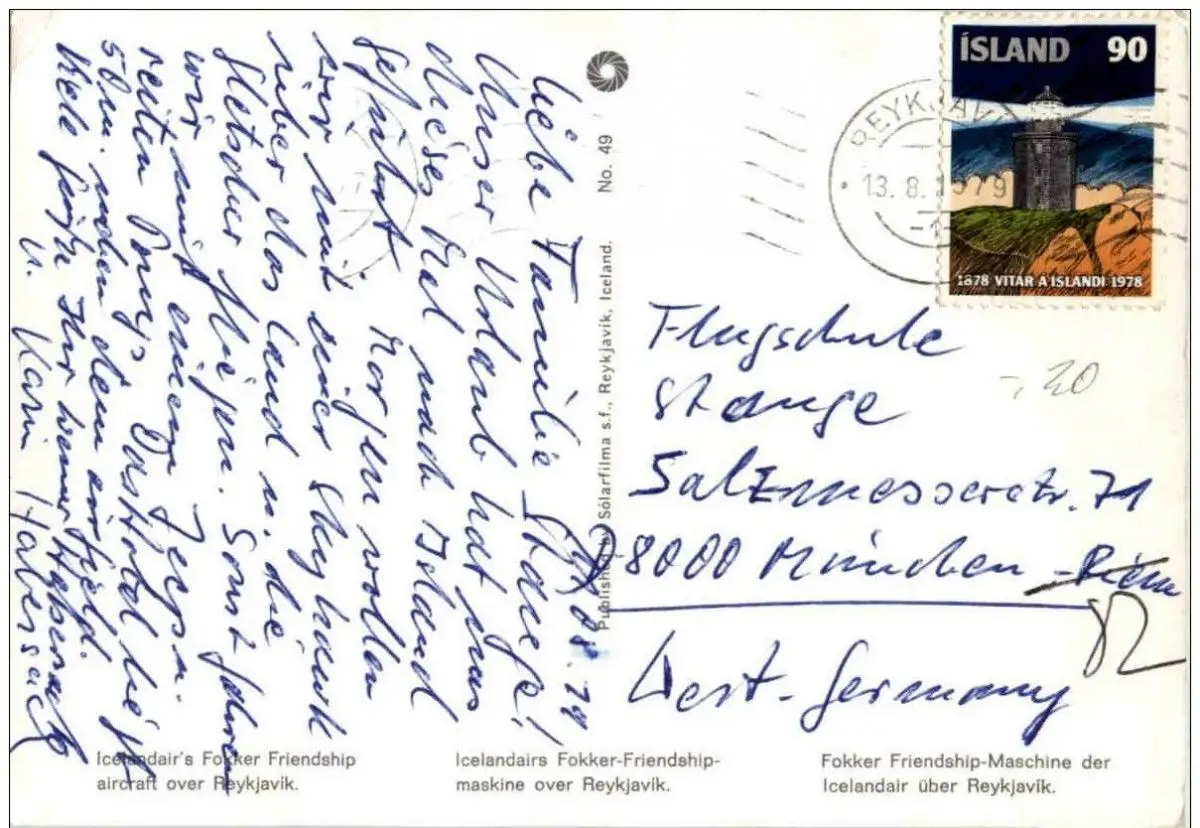 ÍSLAND 90
REYKJAVÍK
13.8.1979
1878 VITAR Á ÍSLANDI 1978
No. 49
Published by Sólarfilma s.f., Reykjavík, Iceland.
08.79
Liebe Familie Stange!
Unser Urlaub hat uns
dieses Mal nach Island
geführt. Morgen wollen
wir mit einer Skyhawk
über das Land u. die
Gletscher fliegen. Sonst fahren
wir mit einem Jeep u.
reiten Ponys. Das Hotel liegt
50 m neben dem Airfield.
Viele Grüße Ihr Werner Habersack
u. Karin Habersack
Flugschule
Stange
Salzmesserstr. 71
8000 München -Riem
82
West-Germany
-,20
Icelandair's Fokker Friendship
aircraft over Reykjavík.
Icelandairs Fokker-Friendship-
maskine over Reykjavík.
Fokker Friendship-Maschine der
Icelandair über Reykjavík.